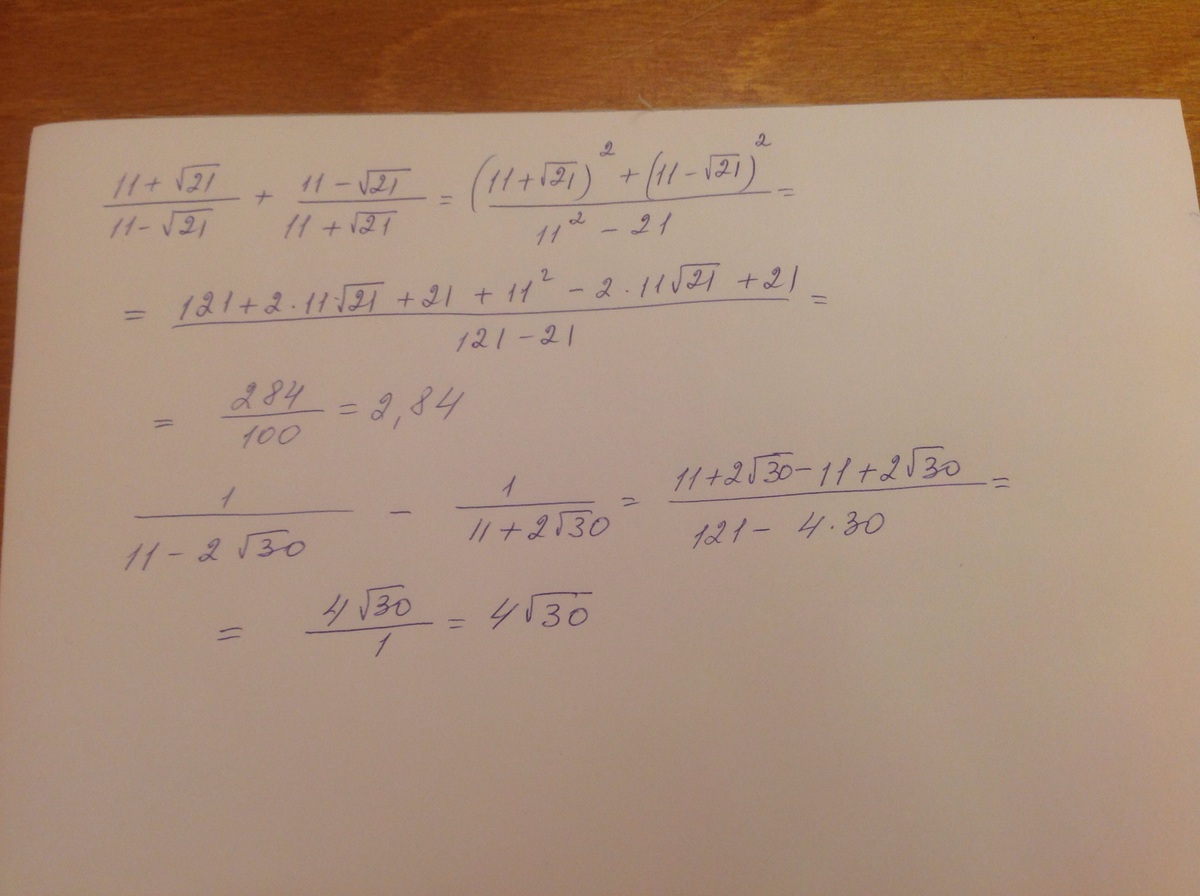 (11+√21)/(11-√21) + (11-√21)/(11+√21) = ((11+√21)² + (11-√21)²)/(11² - 21) =
= (121+2·11√21+21+11²-2·11√21+21)/(121-21) =
= 284/100 = 2,84
1/(11-2√30) - 1/(11+2√30) = (11+2√30-11+2√30)/(121-4·30) =
= 4√30/1 = 4√30